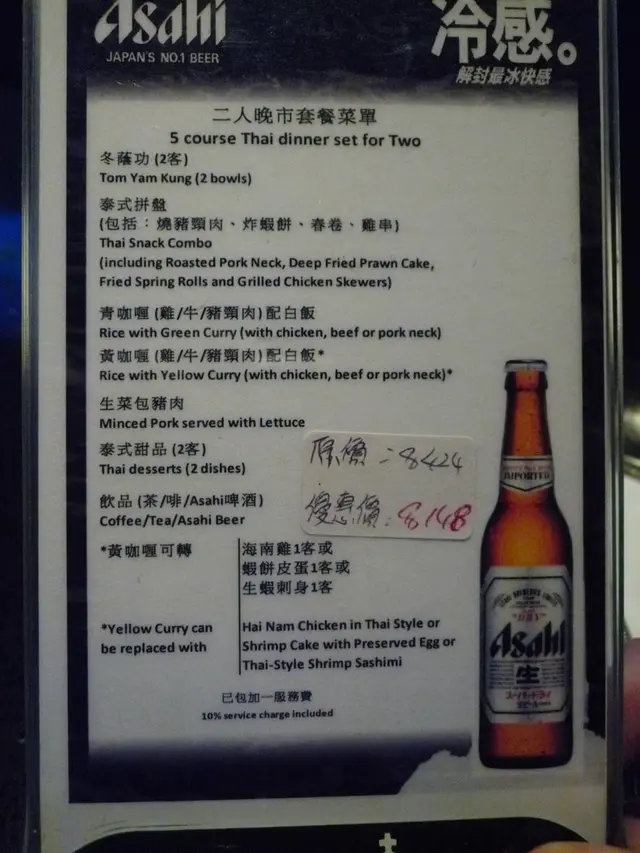 Asahi
JAPAN'S NO.1 BEER
冷感。
解封最冰快感
二人晚市套餐菜單
5 course Thai dinner set for Two
冬蔭功 (2客)
Tom Yam Kung (2 bowls)
泰式拼盤
(包括：燒豬頸肉、炸蝦餅、春卷、雞串)
Thai Snack Combo
(including Roasted Pork Neck, Deep Fried Prawn Cake,
Fried Spring Rolls and Grilled Chicken Skewers)
青咖喱 (雞/牛/豬頸肉) 配白飯
Rice with Green Curry (with chicken, beef or pork neck)
黃咖喱 (雞/牛/豬頸肉) 配白飯*
Rice with Yellow Curry (with chicken, beef or pork neck)*
生菜包豬肉
Minced Pork served with Lettuce
泰式甜品 (2客)
Thai desserts (2 dishes)
原價：$424
優惠價：$148
飲品 (茶/啡/Asahi啤酒)
Coffee/Tea/Asahi Beer
*黃咖喱可轉
海南雞1客或
蝦餅皮蛋1客或
生蝦刺身1客
*Yellow Curry can
be replaced with
Hai Nam Chicken in Thai Style or
Shrimp Cake with Preserved Egg or
Thai-Style Shrimp Sashimi
已包加一服務費
10% service charge included
IMPORTED
"DRY"
Asahi
生
スーパードライ